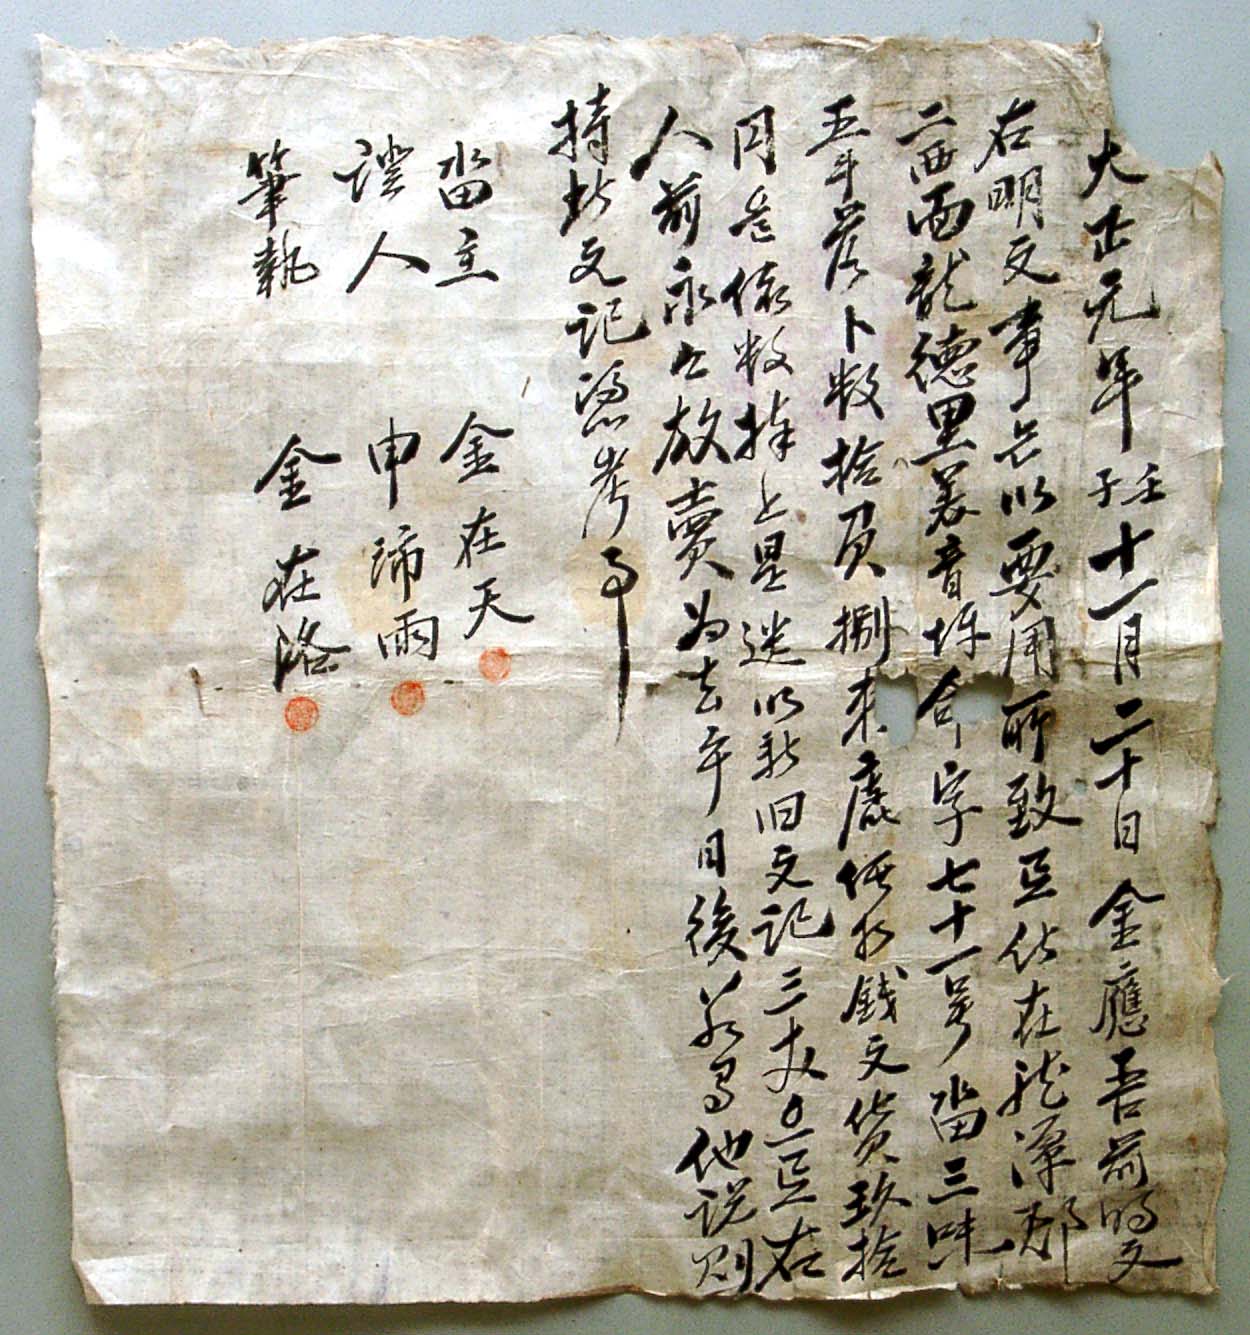 大正元年壬子十一月二十日 金應吾前明文
右明文事段以要用所致 伏在醴泉郡
二西面龍德里 音坪合字七十一号畓三斗
五升落卜数拾負捌束 価折錢文貨玖拾
円 依数捧上是遣以新旧文記三丈 右
人前永永放賣為去乎日後若有他説則
持此文記憑考事
畓主 金在天
證人 申霈雨
筆執 金在洛